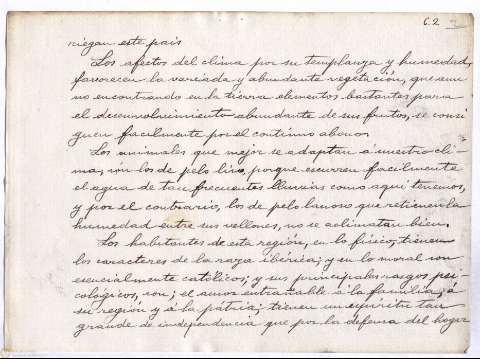 62
riegan este país
Los afectos del clima por su templanza y humedad,
favorecen la vareada y abundante vegetación, que aun
no encontrando en la tierra elementos bastantes para
el desenvolvimiento abundante de sus frutos, se consi
guen facilmente por el continuo abono.
Los animales que mejor se adaptan á nuestro cli-
ma, son los de pelo liso, porque escurren facilmente
el agua de tan frecuentes lluvias como aqui tenemos,
y por el contrario, los de pelo lanoso que retienen la
humedad entre sus vellones, no se aclimatan bien.
Los habitantes de esta región, en lo físico, tienen
los caracteres de la raza ibérica; y en lo moral son
esencialmente católicos; y sus principales rasgos psi-
cológicos, son; el amor entrañable á la familia, á
su region y á la pátria; tienen un espiritu tan
grande de independencia que por la defensa del hogar